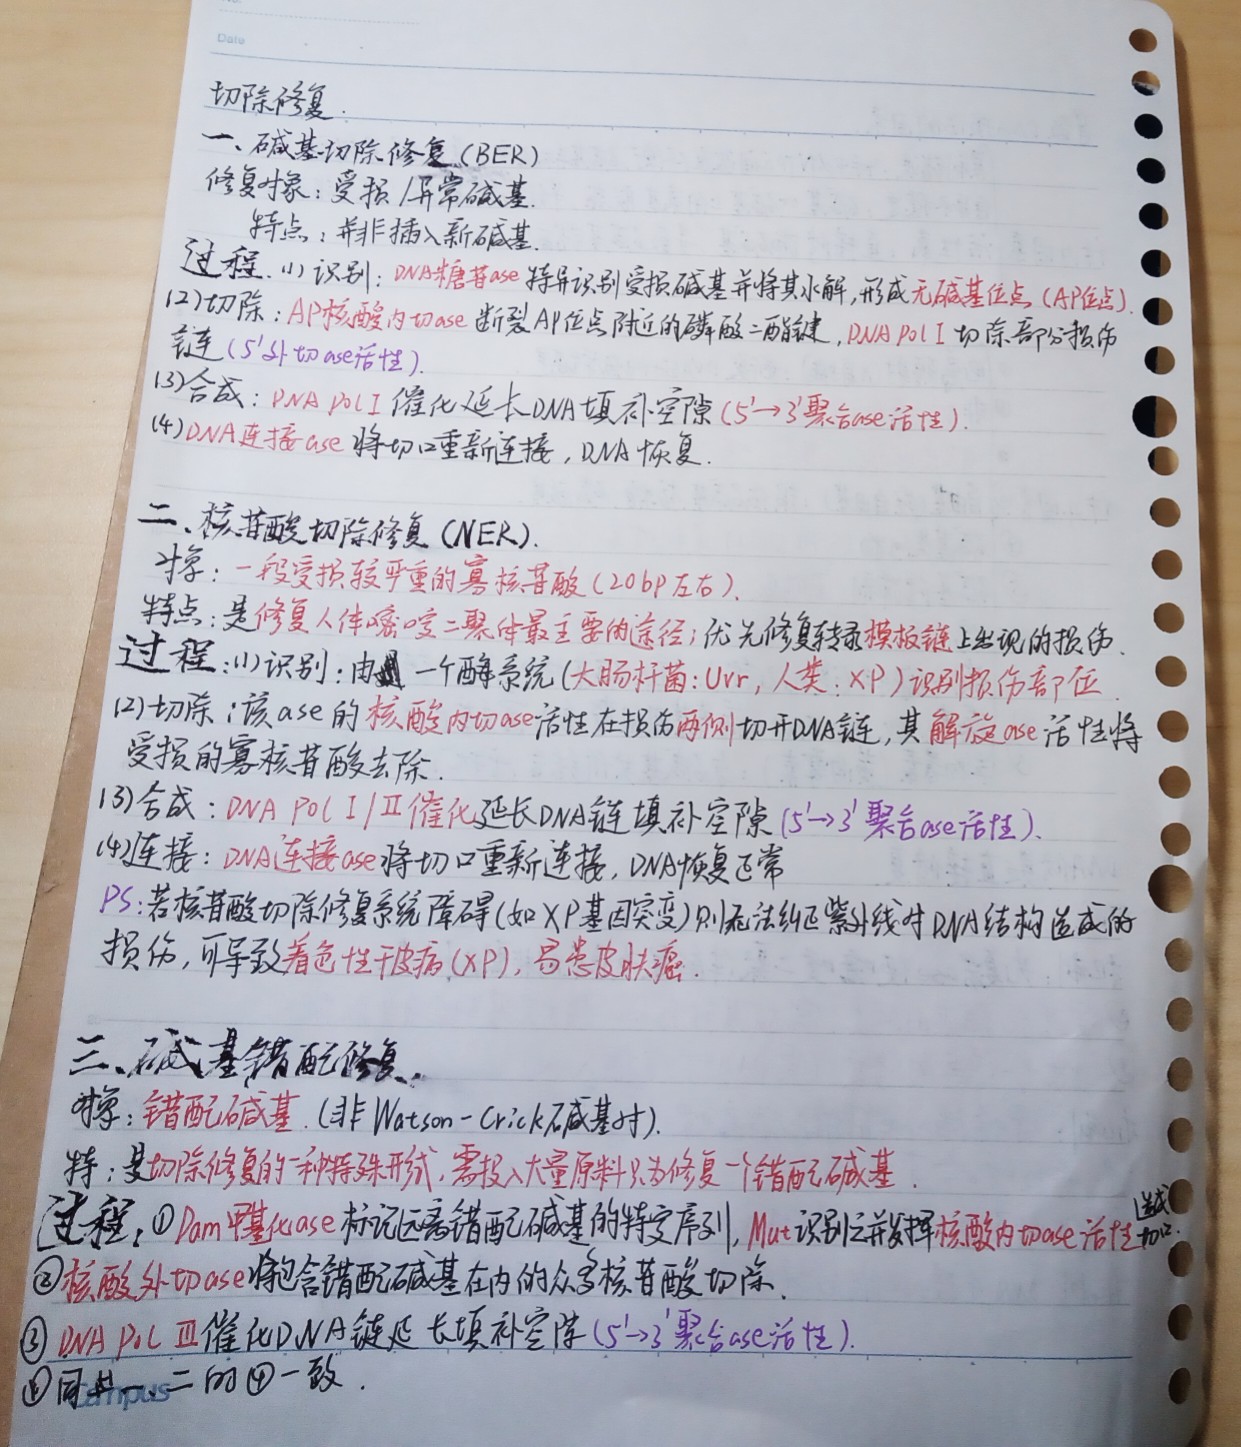 No.
Date
切除修复.
一、碱基切除修复(BER)
修复对象:受损/异常碱基.
特点:并非插入新碱基.
过程.(1)识别:DNA糖苷ase特异识别受损碱基并将其水解,形成无碱基位点(AP位点).
(2)切除:AP核酸内切ase断裂AP位点附近的磷酸二酯键,DNA Pol I 切除部分损伤
链(5'外切ase活性).
(3)合成:DNA Pol I 催化延长DNA填补空隙(5'→3'聚合ase活性).
(4)DNA连接ase将切口重新连接,DNA恢复.
二、核苷酸切除修复(NER).
对象:一段受损较严重的寡核苷酸(20bp左右).
特点:是修复人体嘧啶二聚体最主要的途径;优先修复转录模板链上出现的损伤.
过程:(1)识别:由一个酶系统(大肠杆菌:Uvr,人类:XP)识别损伤部位
(2)切除:该ase的核酸内切ase活性在损伤两侧切开DNA链,其解旋ase活性将
受损的寡核苷酸去除.
(3)合成:DNA Pol I/II催化延长DNA链填补空隙(5'→3'聚合ase活性).
(4)连接:DNA连接ase将切口重新连接,DNA恢复正常
PS:若核苷酸切除修复系统障碍(如XP基因突变)则无法纠正紫外线对DNA结构造成的
损伤,可导致着色性干皮病(XP),易患皮肤癌.
三、碱基错配修复.
对象:错配碱基.(非Watson-Crick碱基对).
特:是切除修复的一种特殊形式,需投入大量原料只为修复一个错配碱基.
过程:①Dam甲基化ase标记远离错配碱基的特定序列,Mut识别之并发挥核酸内切ase活性造成切口.
②核酸外切ase将包含错配碱基在内的众多核苷酸切除.
③DNA Pol III催化DNA链延长填补空隙(5'→3'聚合ase活性).
④同一、二的④一致.
Campus